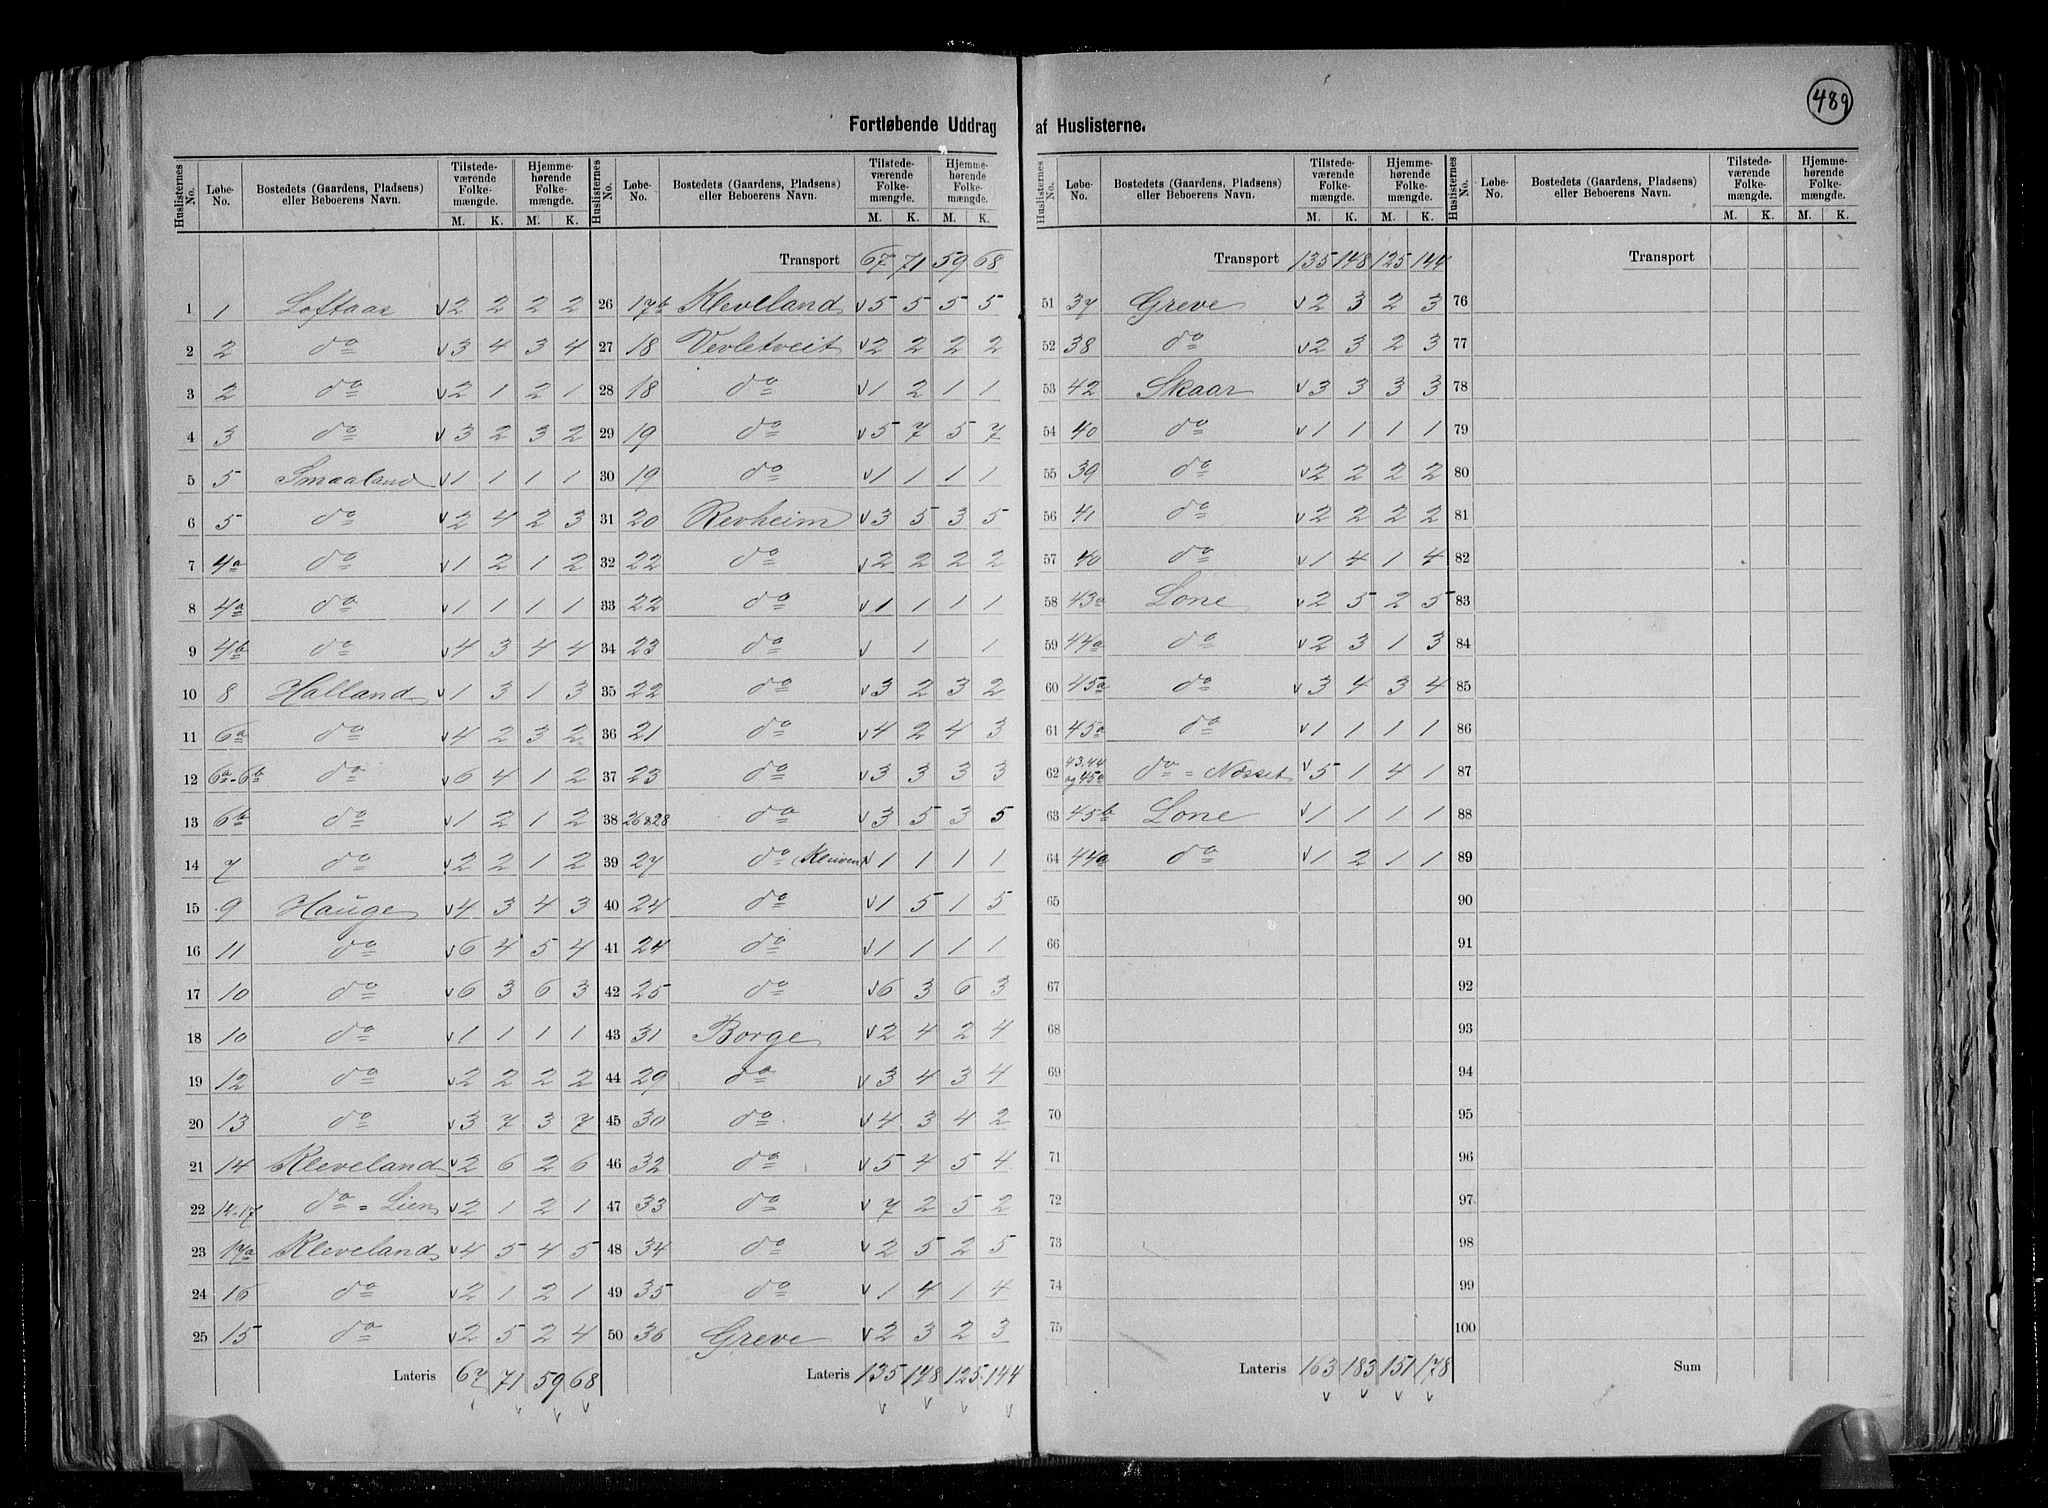 489
Fortløbende Uddrag af Huslisterne.
Huslisternes No. Løbe-No. Bostedets (Gaardens, Pladsens) eller Beboerens Navn. Tilstedeværende Folkemængde. M. K. Hjemmehørende Folkemængde. M. K.
1 1 Loftaas v 2 2 2 2
2 2 do v 3 4 3 4
3 2 do v 2 1 2 1
4 3 do v 3 2 3 2
5 5 Smaaland v 1 1 1 1
6 5 do v 2 4 2 3
7 4a do v 1 2 1 2
8 4a do v 1 1 1 1
9 4b do v 4 3 4 4
10 8 Halland v 1 3 1 3
11 6a do v 4 2 3 2
12 6a-6b do v 6 4 1 2
13 6b do v 1 2 1 2
14 7 do v 2 2 1 2
15 9 Hauge v 4 3 4 3
16 11 do v 6 4 5 4
17 10 do v 6 3 6 3
18 10 do v 1 1 1 1
19 12 do v 2 2 2 2
20 13 do v 3 7 3 7
21 14 Kleveland v 2 6 2 6
22 14-17 do = Lien v 2 1 2 1
23 17a Kleveland v 4 5 4 5
24 16 do v 2 1 2 1
25 15 do v 2 5 2 4
Lateris 67 71 59 68
Huslisternes No. Løbe-No. Bostedets (Gaardens, Pladsens) eller Beboerens Navn. Tilstedeværende Folkemængde. M. K. Hjemmehørende Folkemængde. M. K.
Transport 67 71 59 68
26 17b Kleveland v 5 5 5 5
27 18 Vevletveit v 2 2 2 2
28 18 do v 1 2 1 1
29 19 do v 5 7 5 7
30 19 do v 1 1 1 1
31 20 Revheim v 3 5 3 5
32 22 do v 2 2 2 2
33 22 do v 1 1 1 1
34 23 do v 1 1
35 22 do v 3 2 3 2
36 21 do v 4 2 4 3
37 23 do v 3 3 3 3
38 26&28 do v 3 5 3 5
39 27 do v 1 1 1 1
40 24 do v 1 5 1 5
41 24 do v 1 1 1 1
42 25 do v 6 3 6 3
43 31 Borge v 2 4 2 4
44 29 do v 3 4 3 4
45 30 do v 4 3 4 2
46 32 do v 5 4 5 4
47 33 do v 7 2 5 2
48 34 do v 2 5 2 5
49 35 do v 1 4 1 4
50 36 Greve v 2 3 2 3
Lateris 135 148 125 144
Huslisternes No. Løbe-No. Bostedets (Gaardens, Pladsens) eller Beboerens Navn. Tilstedeværende Folkemængde. M. K. Hjemmehørende Folkemængde. M. K.
Transport 135 148 125 144
51 37 Greve v 2 3 2 3
52 38 do v 2 3 2 3
53 42 Skaar v 3 3 3 3
54 40 do v 1 1 1 1
55 39 do v 2 2 2 2
56 41 do v 2 2 2 2
57 40 do v 1 4 1 4
58 43a Lone v 2 5 2 5
59 44a do v 2 3 1 3
60 45a do v 3 4 3 4
61 45a do v 1 1 1 1
62 43.44 og 45a do = Næsset v 5 1 4 1
63 45b Lone v 1 1 1 1
64 44a do v 1 2 1 1
65
66
67
68
69
70
71
72
73
74
75
Lateris 163 183 151 178
Huslisternes No. Løbe-No. Bostedets (Gaardens, Pladsens) eller Beboerens Navn. Tilstedeværende Folkemængde. M. K. Hjemmehørende Folkemængde. M. K.
Transport
76
77
78
79
80
81
82
83
84
85
86
87
88
89
90
91
92
93
94
95
96
97
98
99
100
Sum